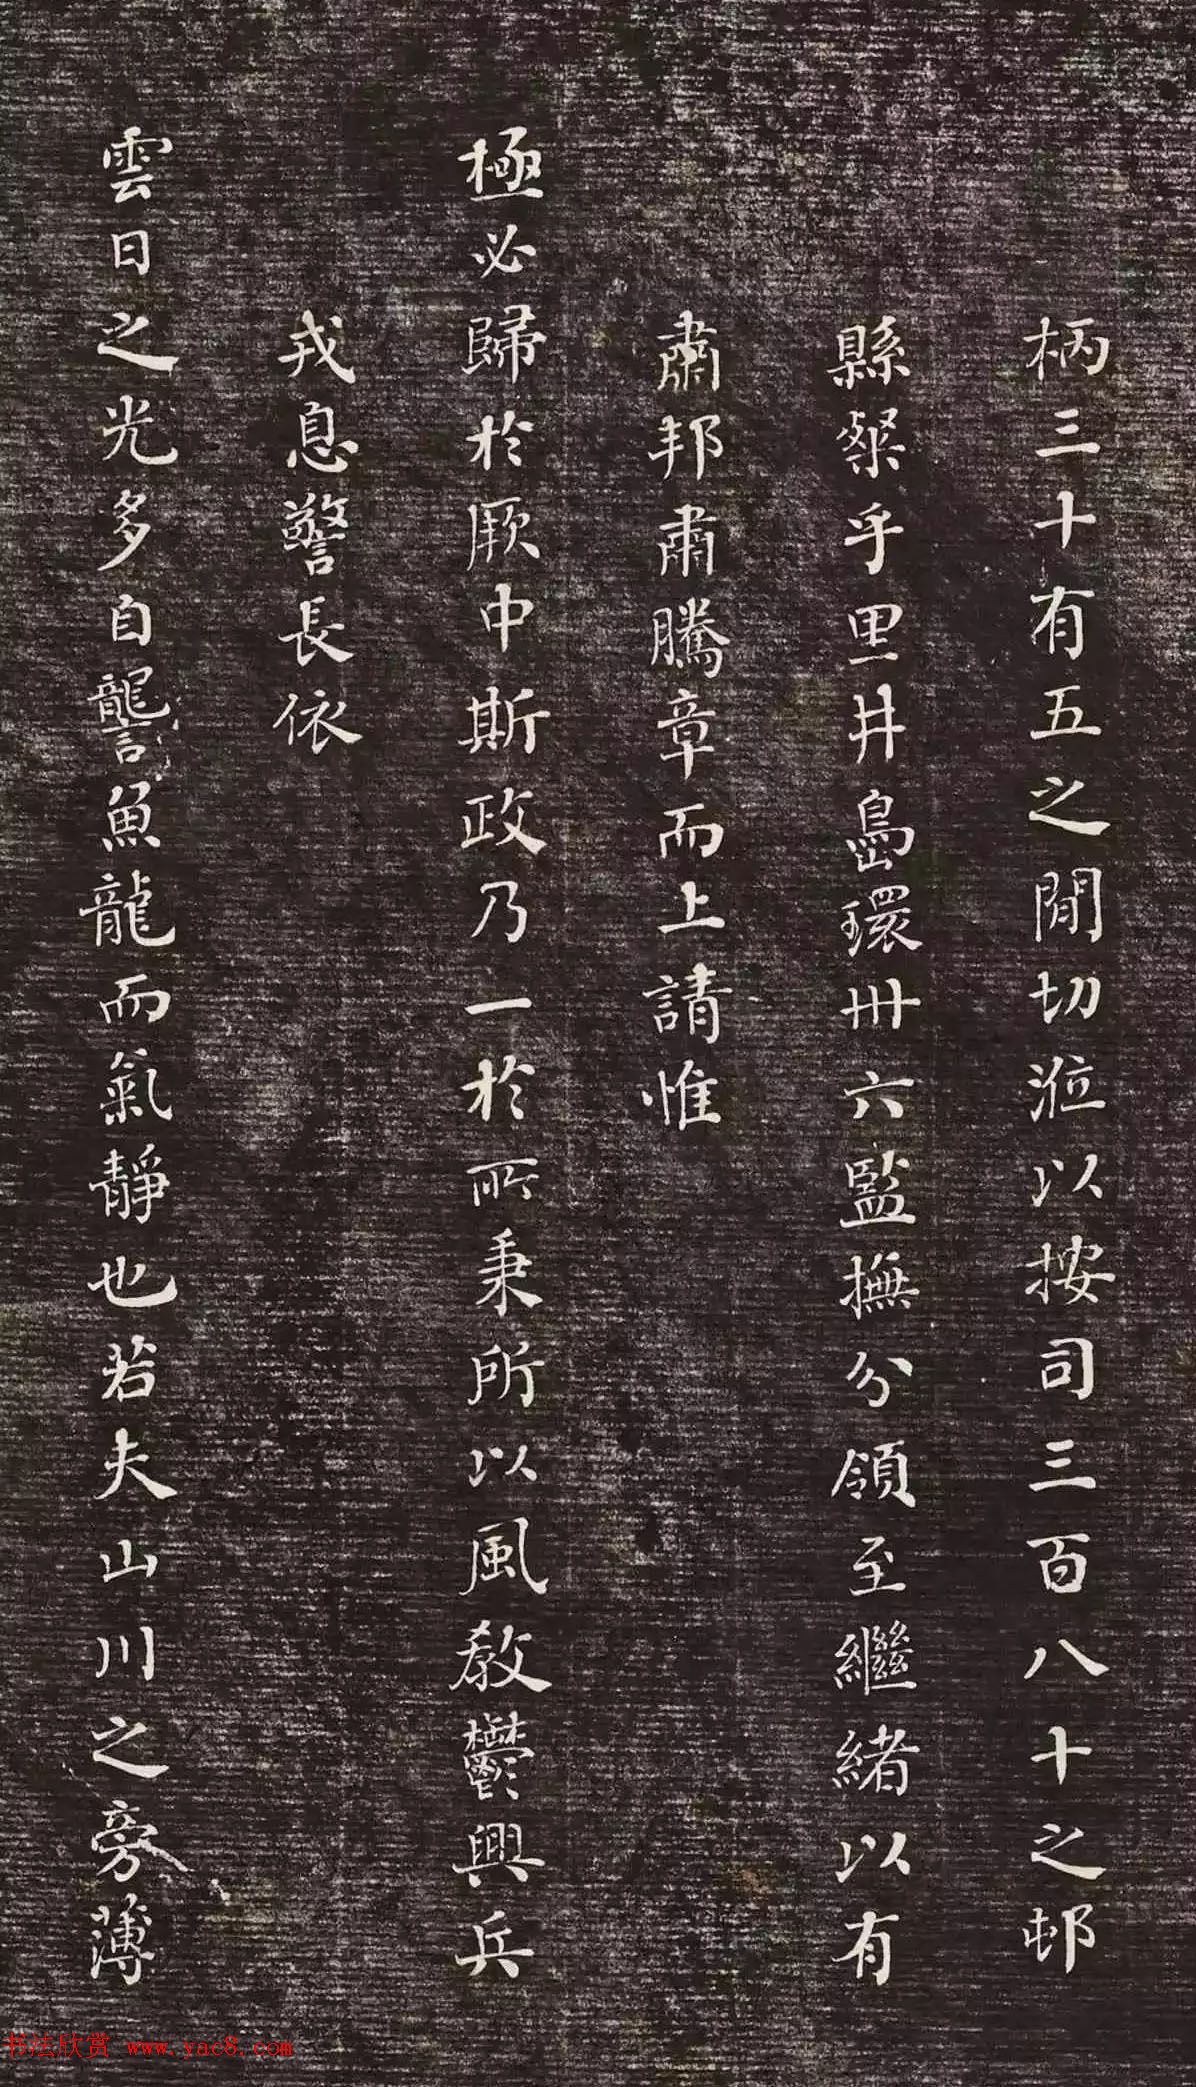 柄三十有五之間切涖以按司三百八十之邨
縣粲乎里井島環卅六監撫分領至繼緒以有
肅邦肅肅騰章而上請惟
極必歸於厥中斯政乃一於所秉所以風教鬱興兵
戎息警長依
雲日之光多自讋魚龍而氣靜也若夫山川之旁薄
书法欣赏 www.yac8.com